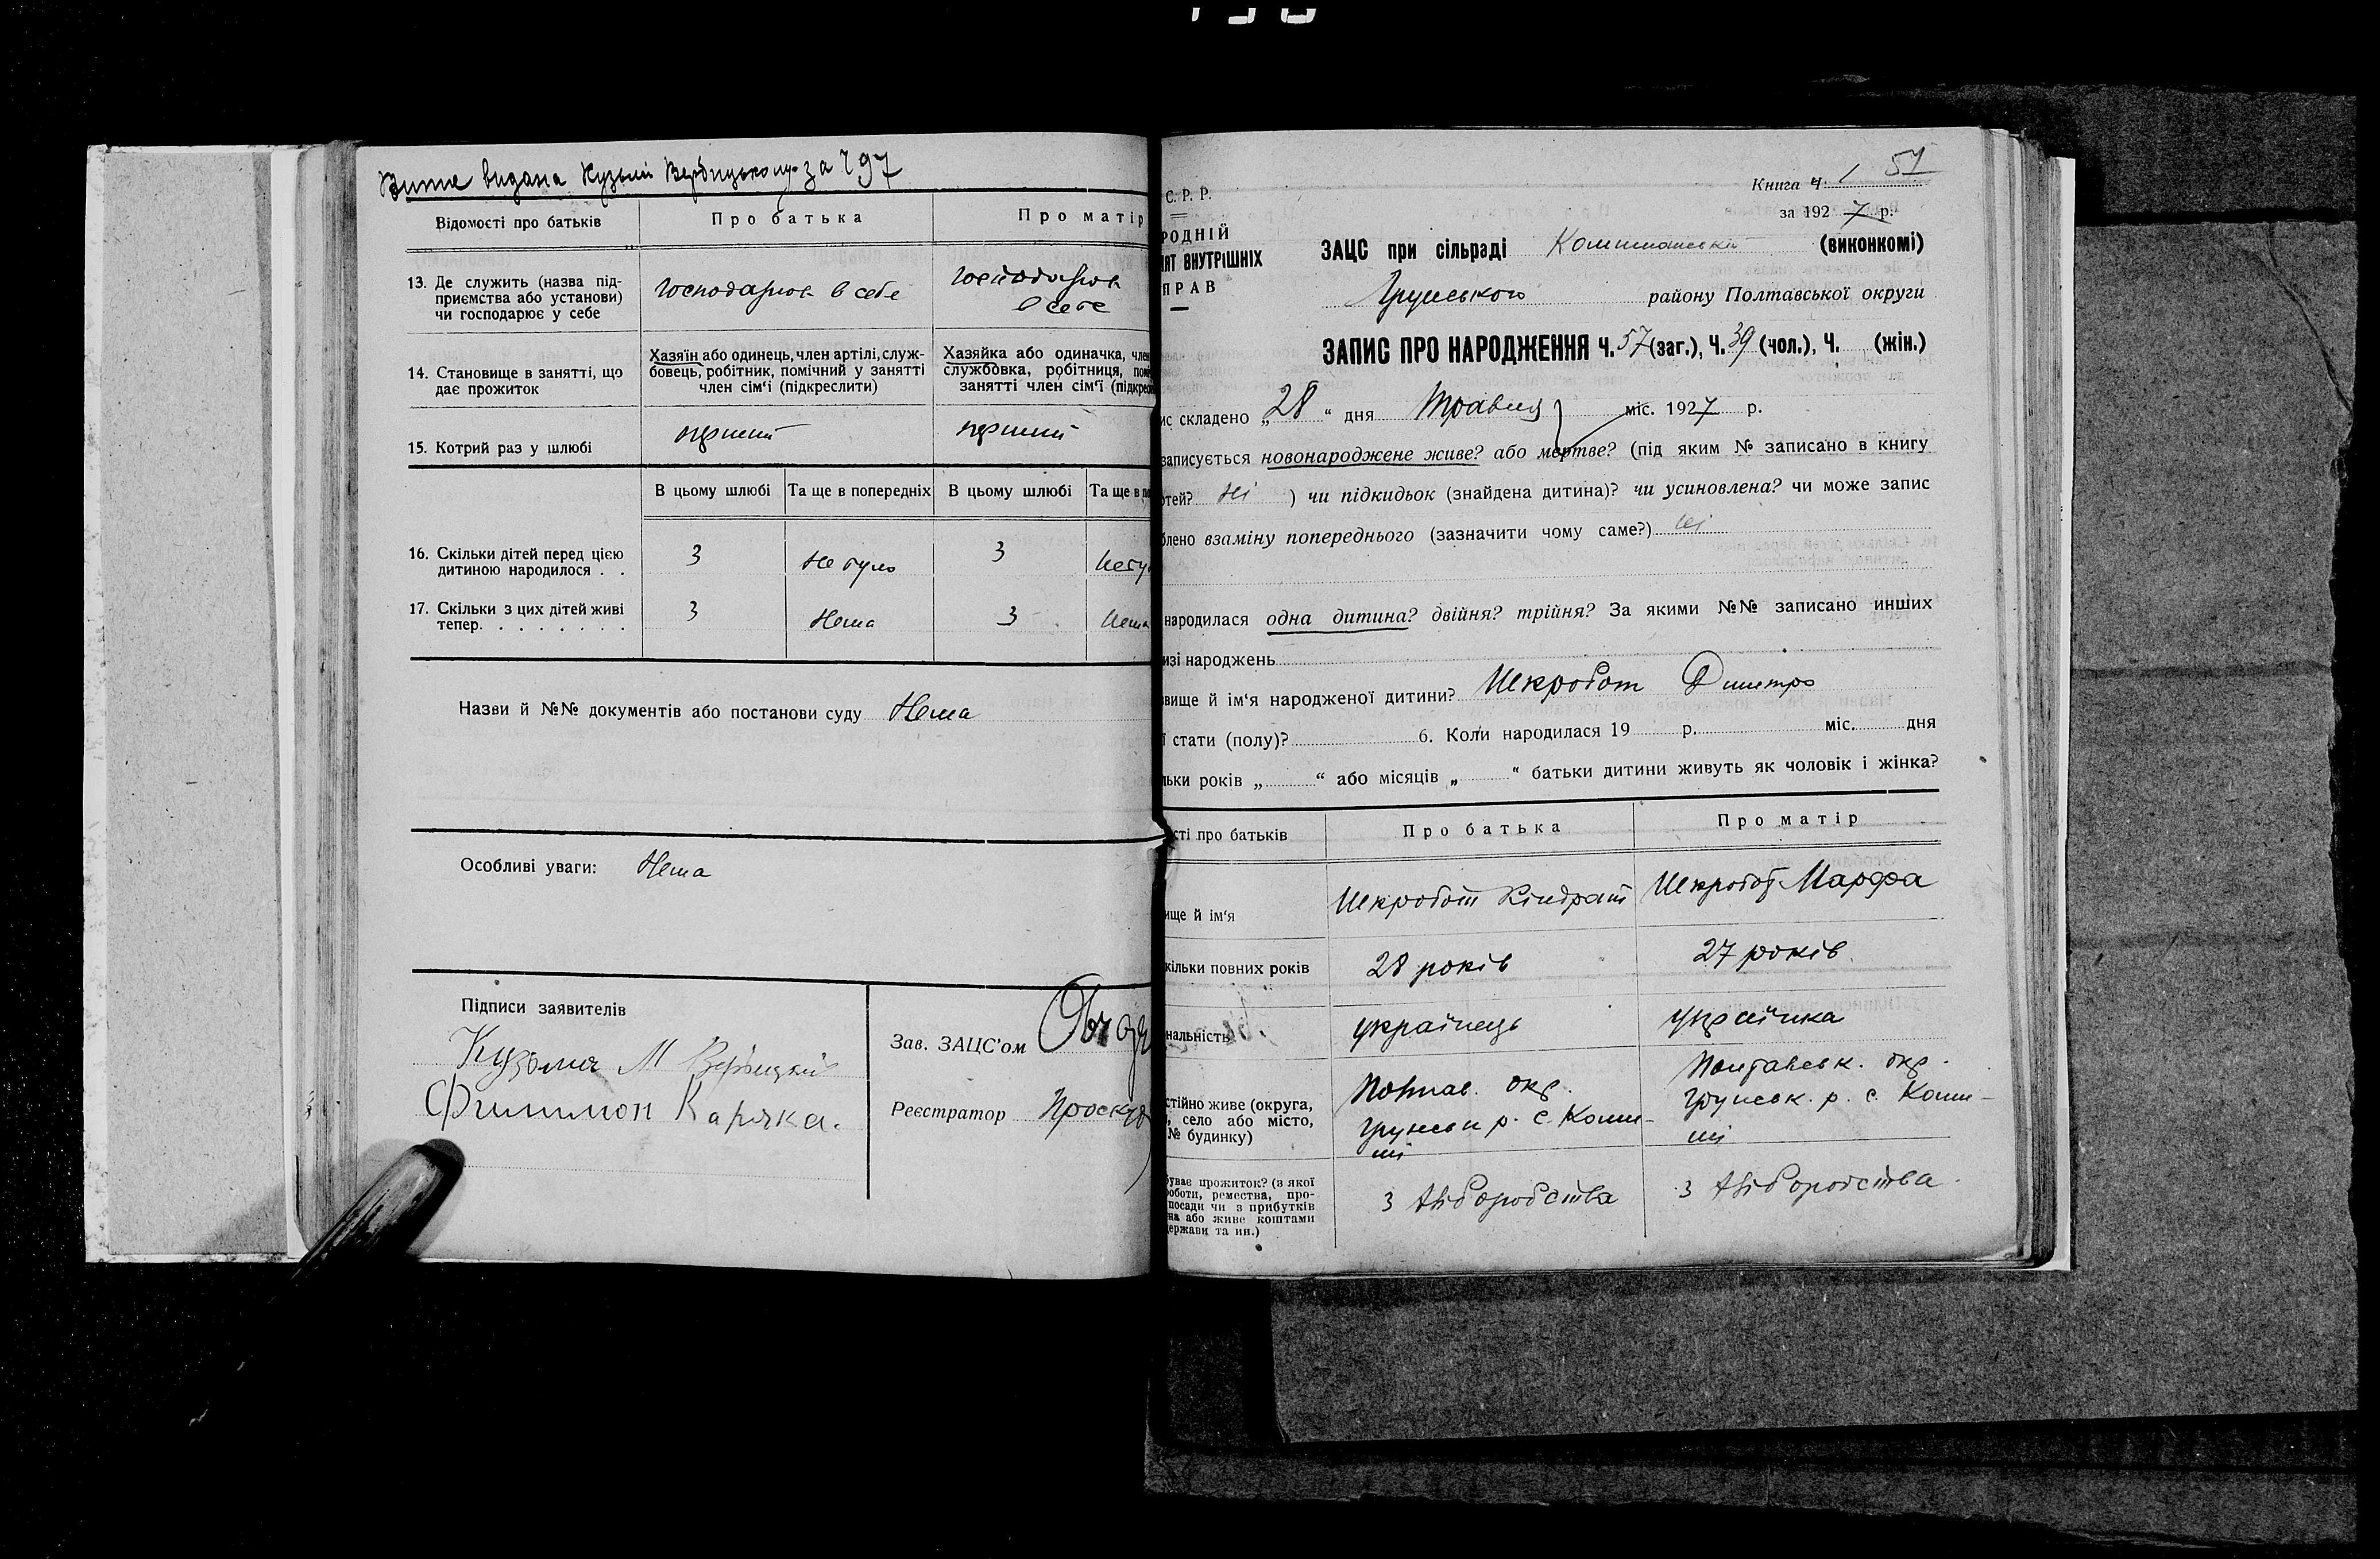 Витяг видана Кузьмі Вербицькому за ч 97
Відомості про батьків
Про батька
Про матір
13. Де служить (назва під-
приємства або установи)
чи господарює у себе
господарює в себе
господарює
в себе
14. Становище в занятті, що
дає прожиток
Хазяїн або одинець, член артілі, служ-
бовець, робітник, помічний у занятті
член сім'ї (підкреслити)
Хазяйка або одиначка, член
службовка, робітниця, помі
занятті член сім'ї (підкрес
15. Котрий раз у шлюбі
перший
перший
В цьому шлюбі
Та ще в попередніх
В цьому шлюбі
Та ще в по
16. Скільки дітей перед цією
дитиною народилося . .
3
Не було
3
Небу
17. Скільки з цих дітей живі
тепер. . . . . . . .
3
Нема
3
Нема
Назви й №№ документів або постанови суду Нема
Особливі уваги: Нема
Підписи заявителів
Кузьма М Вербицкий
Филимон Каряка.
Зав. ЗАЦС'ом
Реєстратор Проску
Книга ч. 1 57
за 1927 р.
С. Р. Р.
РОДНІЙ
ІЯТ ВНУТРІШНІХ
ПРАВ
ЗАЦС при сільраді (виконкомі)
Грунського району Полтавської округи
ЗАПИС ПРО НАРОДЖЕННЯ Ч. 57 (заг.), Ч. 39 (чол.), Ч. (жін.)
ис складено „28“ дня Травня міс. 1927 р.
записується новонароджене живе? або мертве? (під яким № записано в книгу
ртей? Ні ) чи підкидьок (знайдена дитина)? чи усиновлена? чи може запис
блено взаміну попереднього (зазначити чому саме?) Ні
народилася одна дитина? двійня? трійня? За якими №№ записано инших
изі народжень
вище й ім'я народженої дитини? Шкробот Дмитро
ї стати (полу)? 6. Коли народилася 19 р. міс. дня
льки років „ “ або місяців „ “ батьки дитини живуть як чоловік і жінка?
сті про батьків
Про батька
Про матір
ище й ім'я
Шкробот Кіндрат
Шкробот Марфа
кільки повних років
28 років
27 років
нальність
українець
українка
стійно живе (округа,
, село або місто,
№ будинку)
Полтав. окр.
Грунськ р. с. Коми-
ші
Полтавськ. окр.
Грунськ. р. с. Коми-
ші
буває прожиток? (з якої
роботи, ремества, про-
посади чи з прибутків
на або живе коштами
держави та ин.)
з хліборобства
з хліборобства